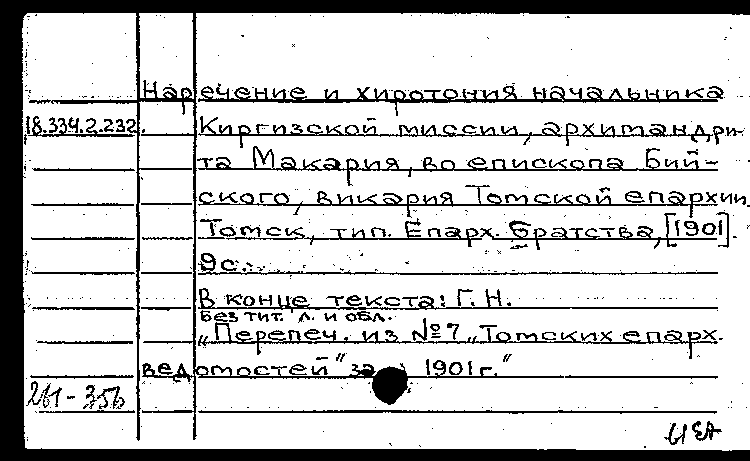 Наречение и хиротония начальника
18.334.2.232. Киргизской миссии, архимандри-
та Макария, во епископа Бий-
ского, викария Томской епархии.
Томск, тип. Епарх. братства, [1901].
9с.
В конце текста: Г. Н.
Без тит. л. и обл.
„Перепеч. из №7 „Томских епарх.
ведомостей" за 1901 г."
261-356